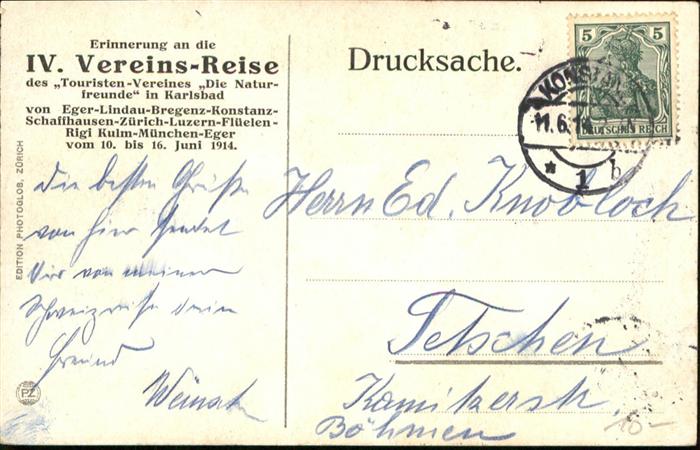 Erinnerung an die
IV. Vereins-Reise
des „Touristen-Vereines „Die Natur-
freunde" in Karlsbad
von Eger-Lindau-Bregenz-Konstanz-
Schaffhausen-Zürich-Luzern-Flüelen-
Rigi Kulm-München-Eger
vom 10. bis 16. Juni 1914.
Drucksache.
5 5
DEUTSCHES REICH
KONSTANZ
11.6.14
* 1 b
EDITION PHOTOGLOB, ZÜRICH
PZ
Die besten Grüße
von hier sendet
Dir von meiner
Schweizreise dein
Freund
Herrn Ed. Knobloch
Tetschen
Kamitzerstr.
Böhmen
10-